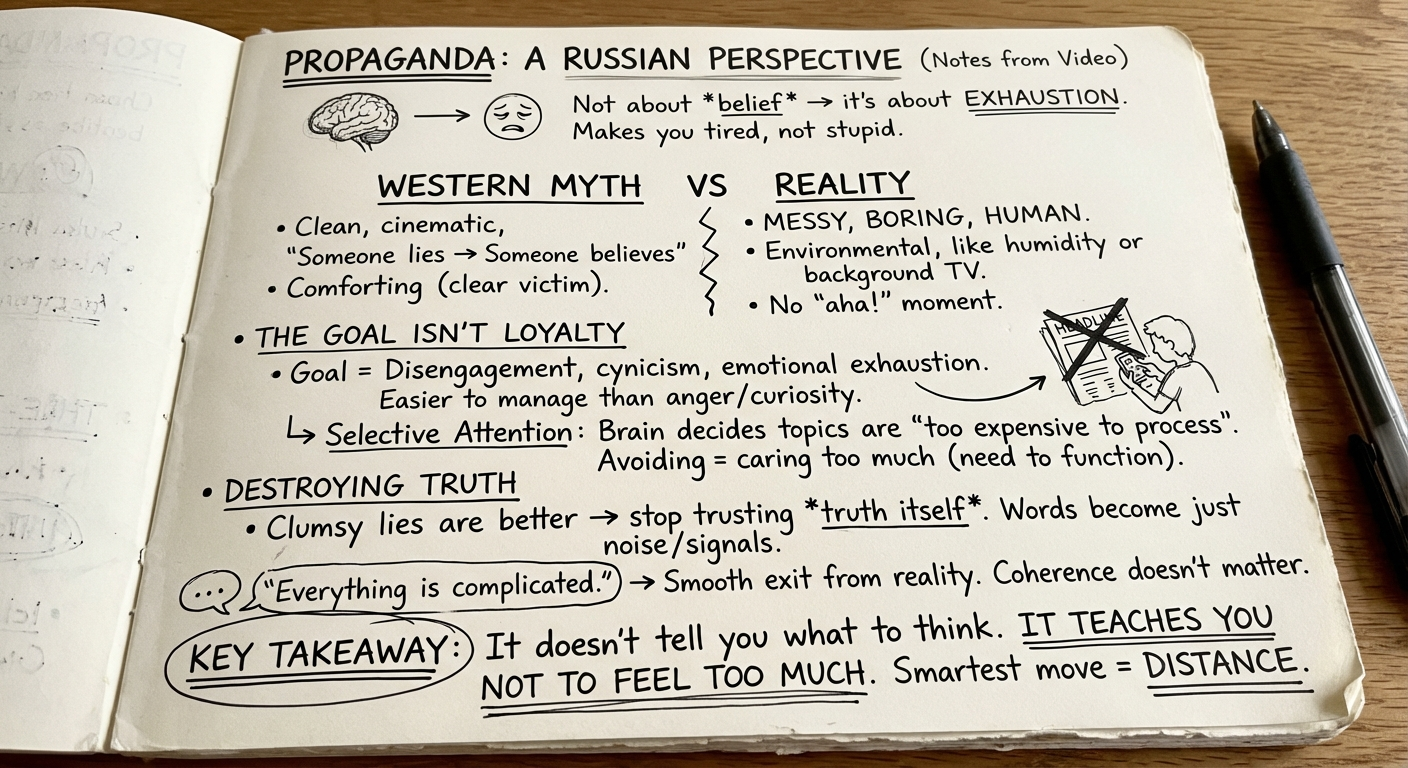 PROPAGANDA: A RUSSIAN PERSPECTIVE (Notes from Video)
Not about *belief* → it's about EXHAUSTION.
Makes you tired, not stupid.
WESTERN MYTH VS REALITY
• Clean, cinematic,
"Someone lies → Someone believes"
• Comforting (clear victim).
• MESSY, BORING, HUMAN.
• Environmental, like humidity or
background TV.
• No "aha!" moment.
HEADLINE
• THE GOAL ISN'T LOYALTY
• Goal = Disengagement, cynicism, emotional exhaustion.
Easier to manage than anger/curiosity.
↳ Selective Attention: Brain decides topics are "too expensive to process".
Avoiding = caring too much (need to function).
• DESTROYING TRUTH
• Clumsy lies are better → stop trusting *truth itself*. Words become just
noise/signals.
"Everything is complicated." → Smooth exit from reality. Coherence doesn't matter.
KEY TAKEAWAY: It doesn't tell you what to think. IT TEACHES YOU
NOT TO FEEL TOO MUCH. Smartest move = DISTANCE.